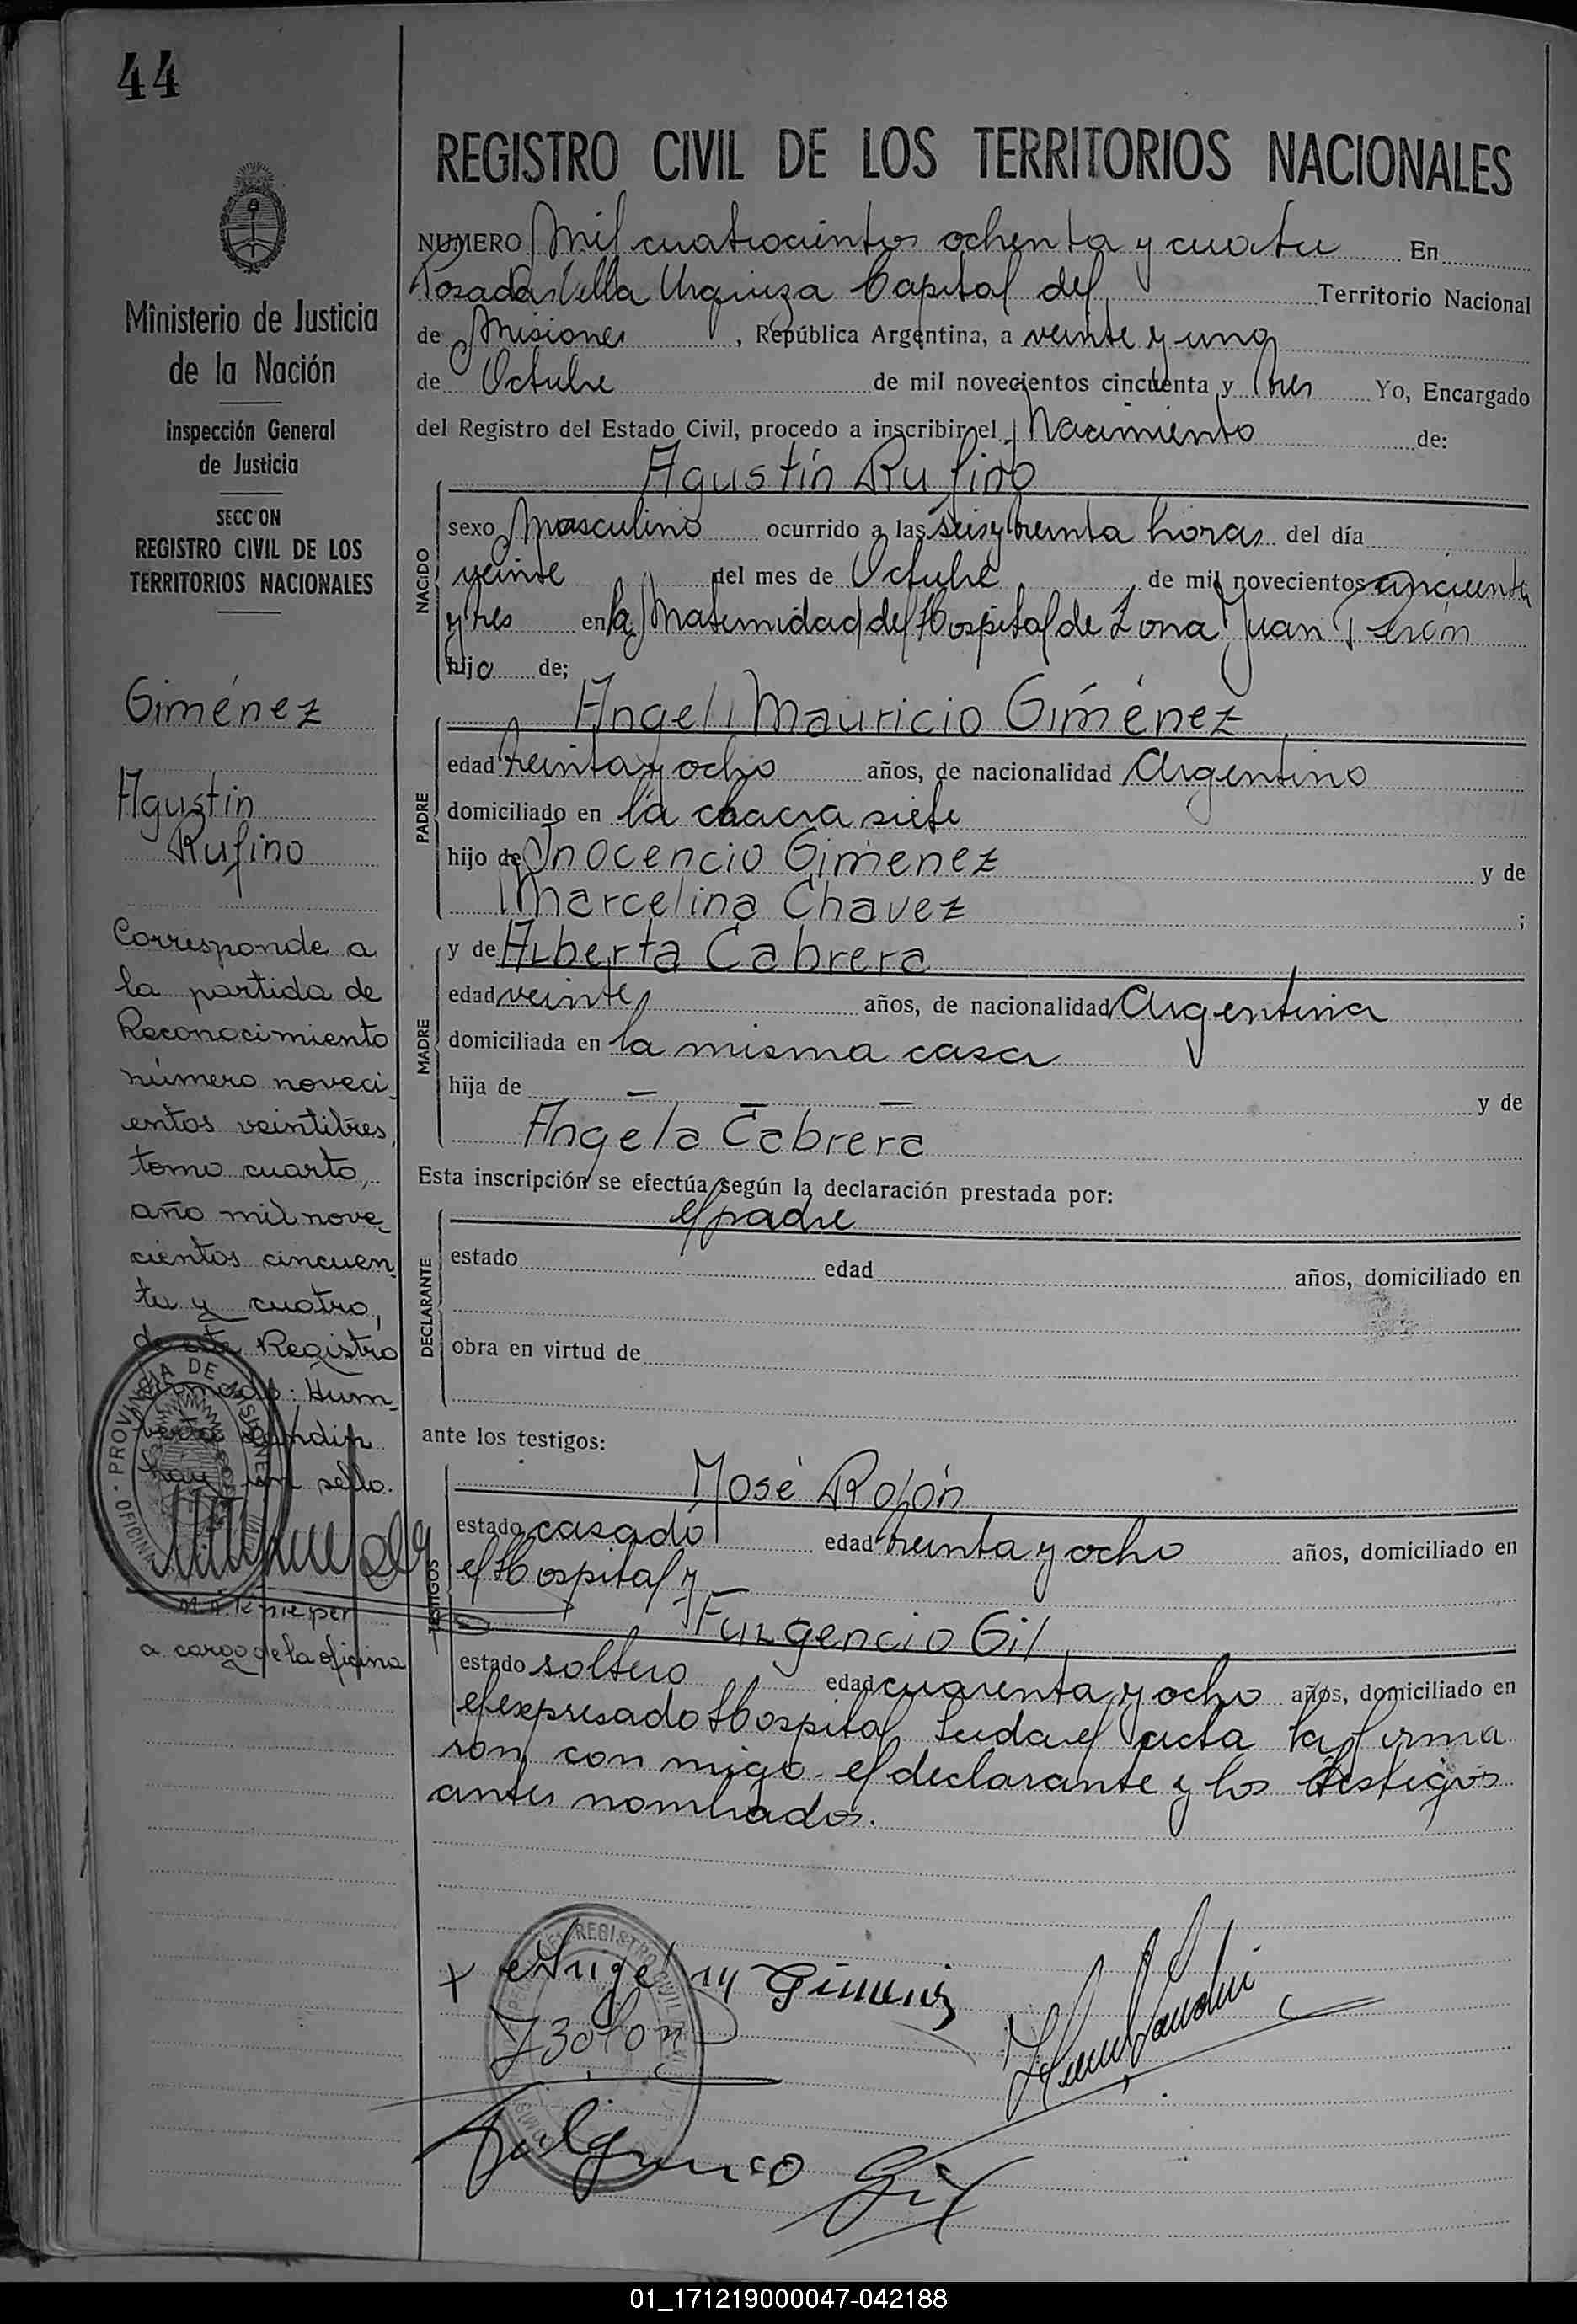 44
Ministerio de Justicia
de la Nación
Inspección General
de Justicia
SECCION
REGISTRO CIVIL DE LOS
TERRITORIOS NACIONALES
Giménez
Agustín
Rufino
Corresponde a
la partida de
Reconocimiento
número noveci
entos veintitres,
tomo cuarto,
año mil nove
cientos cincuen
ta y cuatro,
de este Registro
Firmado: Hum
berto Landin
hay un sello.
PROVINCIA DE MISIONES
OFICINA
a cargo de la oficina
REGISTRO CIVIL DE LOS TERRITORIOS NACIONALES
NUMERO Mil cuatrocientos ochenta y cuatro En
Posadas Villa Urquiza Capital del Territorio Nacional
de Misiones, República Argentina, a veinte y uno
de Octubre de mil novecientos cincuenta y tres Yo, Encargado
del Registro del Estado Civil, procedo a inscribir el Nacimiento de:
Agustín Rufino
NACIDO
sexo Masculino ocurrido a las seis y treinta horas del día
veinte del mes de Octubre de mil novecientos cincuenta
y tres en la Maternidad del Hospital de Zona Juan Perón
hijo de;
Angel Mauricio Giménez
PADRE
edad treinta y ocho años, de nacionalidad Argentino
domiciliado en la chacra siete
hijo de Inocencio Gimenez y de
Marcelina Chavez ;
MADRE
y de Alberta Cabrera
edad veinte años, de nacionalidad Argentina
domiciliada en la misma casa
hija de — — — y de
Angela Cabrera
Esta inscripción se efectúa según la declaración prestada por:
el padre
DECLARANTE
estado edad años, domiciliado en
obra en virtud de
ante los testigos:
José Rolón
TESTIGOS
estado casado edad treinta y ocho años, domiciliado en
el Hospital y
Fulgencio Gil
estado soltero edad cuarenta y ocho años, domiciliado en
el expresado Hospital Leida el acta la firma
ron con migo el declarante y los testigos
antes nombrados.
x Angel M Gimenez
J Rolon
Fulgencio Gil
01_171219000047-042188